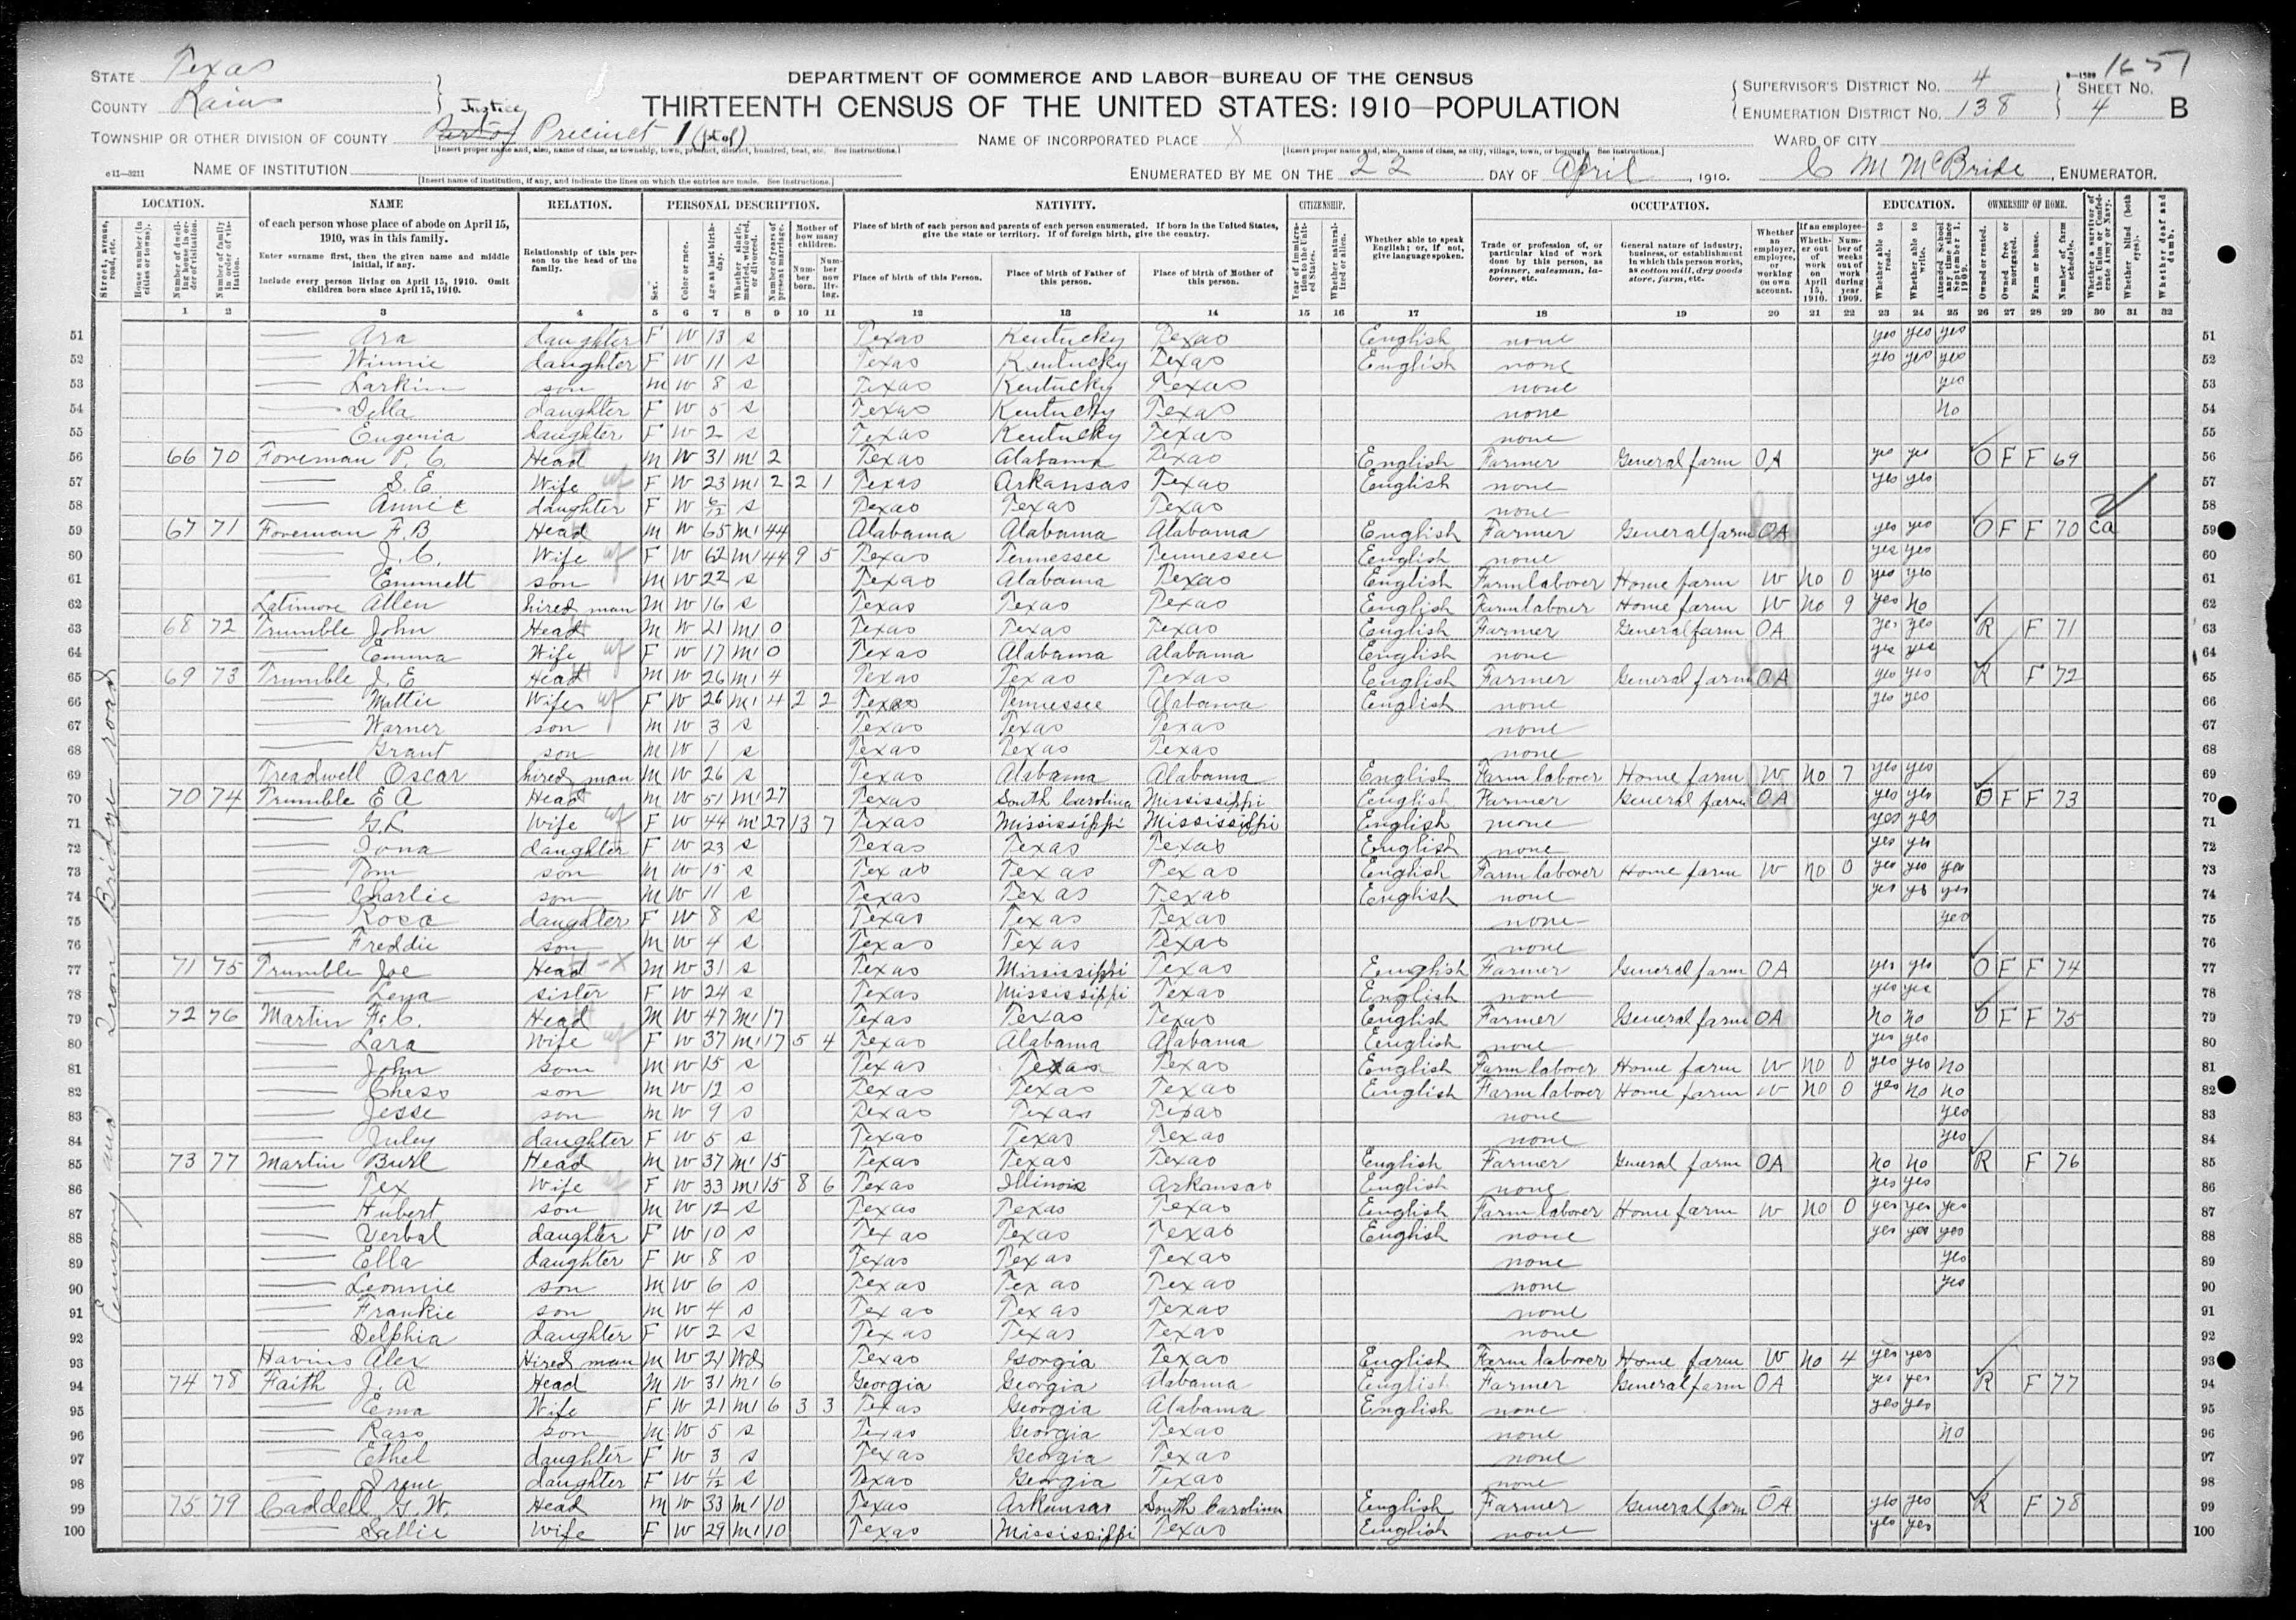 STATE Texas
COUNTY Rains
DEPARTMENT OF COMMERCE AND LABOR—BUREAU OF THE CENSUS
THIRTEENTH CENSUS OF THE UNITED STATES: 1910—POPULATION
SUPERVISOR'S DISTRICT No. 4
ENUMERATION DISTRICT No. 138
SHEET No. 4 B
TOWNSHIP OR OTHER DIVISION OF COUNTY Justice Precinct 1 (pt of)
[Insert proper name and, also, name of class, as township, town, precinct, district, hundred, beat, etc. See instructions.]
NAME OF INCORPORATED PLACE X
[Insert proper name and, also, name of class, as city, village, town, or borough. See instructions.]
WARD OF CITY
NAME OF INSTITUTION
[Insert name of institution, if any, and indicate the lines on which the entries are made. See instructions.]
ENUMERATED BY ME ON THE 22 DAY OF April, 1910.
C M McBride, ENUMERATOR.
LOCATION. NAME RELATION. PERSONAL DESCRIPTION. NATIVITY. CITIZENSHIP. OCCUPATION. EDUCATION. OWNERSHIP OF HOME.
Emory and Iron Bridge road
51 Ara daughter F W 13 s Texas Kentucky Texas English none yes yes yes 51
52 Winnie daughter F W 11 s Texas Kentucky Texas English none yes yes yes 52
53 Larkin son M W 8 s Texas Kentucky Texas none yes 53
54 Della daughter F W 5 s Texas Kentucky Texas none no 54
55 Eugenia daughter F W 2 s Texas Kentucky Texas none 55
56 66 70 Foreman P. C. Head M W 31 M1 2 Texas Alabama Texas English Farmer General farm OA yes yes O F F 69 56
57 S. E. Wife F W 23 M1 2 2 1 Texas Arkansas Texas English none yes yes 57
58 Annie daughter F W 6/12 s Texas Texas Texas none 58
59 67 71 Foreman F. B Head M W 65 M1 44 Alabama Alabama Alabama English Farmer General farm OA yes yes O F F 70 ca 59
60 J. C. Wife F W 62 M1 44 9 5 Texas Tennessee Tennessee English none yes yes 60
61 Emmett son M W 22 s Texas Alabama Texas English Farm laborer Home farm W no 0 yes yes 61
62 Latimore Allen hired man M W 16 s Texas Texas Texas English Farm laborer Home farm W no 9 yes no 62
63 68 72 Trumble John Head M W 21 M1 0 Texas Texas Texas English Farmer General farm OA yes yes R F 71 63
64 Emma Wife F W 17 M1 0 Texas Alabama Alabama English none yes yes 64
65 69 73 Trumble J. E Head M W 26 M1 4 Texas Texas Texas English Farmer General farm OA yes yes R F 72 65
66 Mattie Wife F W 26 M1 4 2 2 Texas Tennessee Alabama English none yes yes 66
67 Warner son M W 3 s Texas Texas Texas none 67
68 Grant son M W 1 s Texas Texas Texas none 68
69 Treadwell Oscar hired man M W 26 s Texas Alabama Alabama English Farm laborer Home farm W no 7 yes yes 69
70 70 74 Trumble E A Head M W 51 M1 27 Texas South Carolina Mississippi English Farmer General farm OA yes yes O F F 73 70
71 G. L. Wife F W 44 M1 27 13 7 Texas Mississippi Mississippi English none yes yes 71
72 Iona daughter F W 23 s Texas Texas Texas English none yes yes 72
73 Tom son M W 15 s Texas Texas Texas English Farm laborer Home farm W no 0 yes yes yes 73
74 Charlie son M W 11 s Texas Texas Texas English none yes yes yes 74
75 Rosa daughter F W 8 s Texas Texas Texas none yes 75
76 Freddie son M W 4 s Texas Texas Texas none 76
77 71 75 Trumble Joe Head M W 31 s Texas Mississippi Texas English Farmer General farm OA yes yes O F F 74 77
78 Lena sister F W 24 s Texas Mississippi Texas English none yes yes 78
79 72 76 Martin F. C. Head M W 47 M1 17 Texas Texas Texas English Farmer General farm OA no no O F F 75 79
80 Lara Wife F W 37 M1 17 5 4 Texas Alabama Alabama English none yes yes 80
81 John son M W 15 s Texas Texas Texas English Farm laborer Home farm W no 0 yes yes no 81
82 Chess son M W 12 s Texas Texas Texas English Farm laborer Home farm W no 0 yes no no 82
83 Jesse son M W 9 s Texas Texas Texas none yes 83
84 Juley daughter F W 5 s Texas Texas Texas none yes 84
85 73 77 Martin Burl Head M W 37 M1 15 Texas Texas Texas English Farmer General farm OA no no R F 76 85
86 Tex Wife F W 33 M1 15 8 6 Texas Illinois Arkansas English none yes yes 86
87 Hubert son M W 12 s Texas Texas Texas English Farm laborer Home farm W no 0 yes yes yes 87
88 Verbal daughter F W 10 s Texas Texas Texas English none yes yes yes 88
89 Ella daughter F W 8 s Texas Texas Texas none yes 89
90 Leonnie son M W 6 s Texas Texas Texas none yes 90
91 Frankie son M W 4 s Texas Texas Texas none 91
92 Delphia daughter F W 2 s Texas Texas Texas none 92
93 Havins Alex Hired man M W 21 Wd Texas Georgia Texas English Farm laborer Home farm W no 4 yes yes 93
94 74 78 Faith J. A Head M W 31 M1 6 Georgia Georgia Alabama English Farmer General farm OA yes yes R F 77 94
95 Ema Wife F W 21 M1 6 3 3 Texas Georgia Alabama English none yes yes 95
96 Rass son M W 5 s Texas Georgia Texas none no 96
97 Ethel daughter F W 3 s Texas Georgia Texas none 97
98 Irene daughter F W 11/12 s Texas Georgia Texas none 98
99 75 79 Caddell G. W. Head M W 33 M1 10 Texas Arkansas South Carolina English Farmer General farm OA yes yes R F 78 99
100 Sallie Wife F W 29 M1 10 Texas Mississippi Texas English none yes yes 100